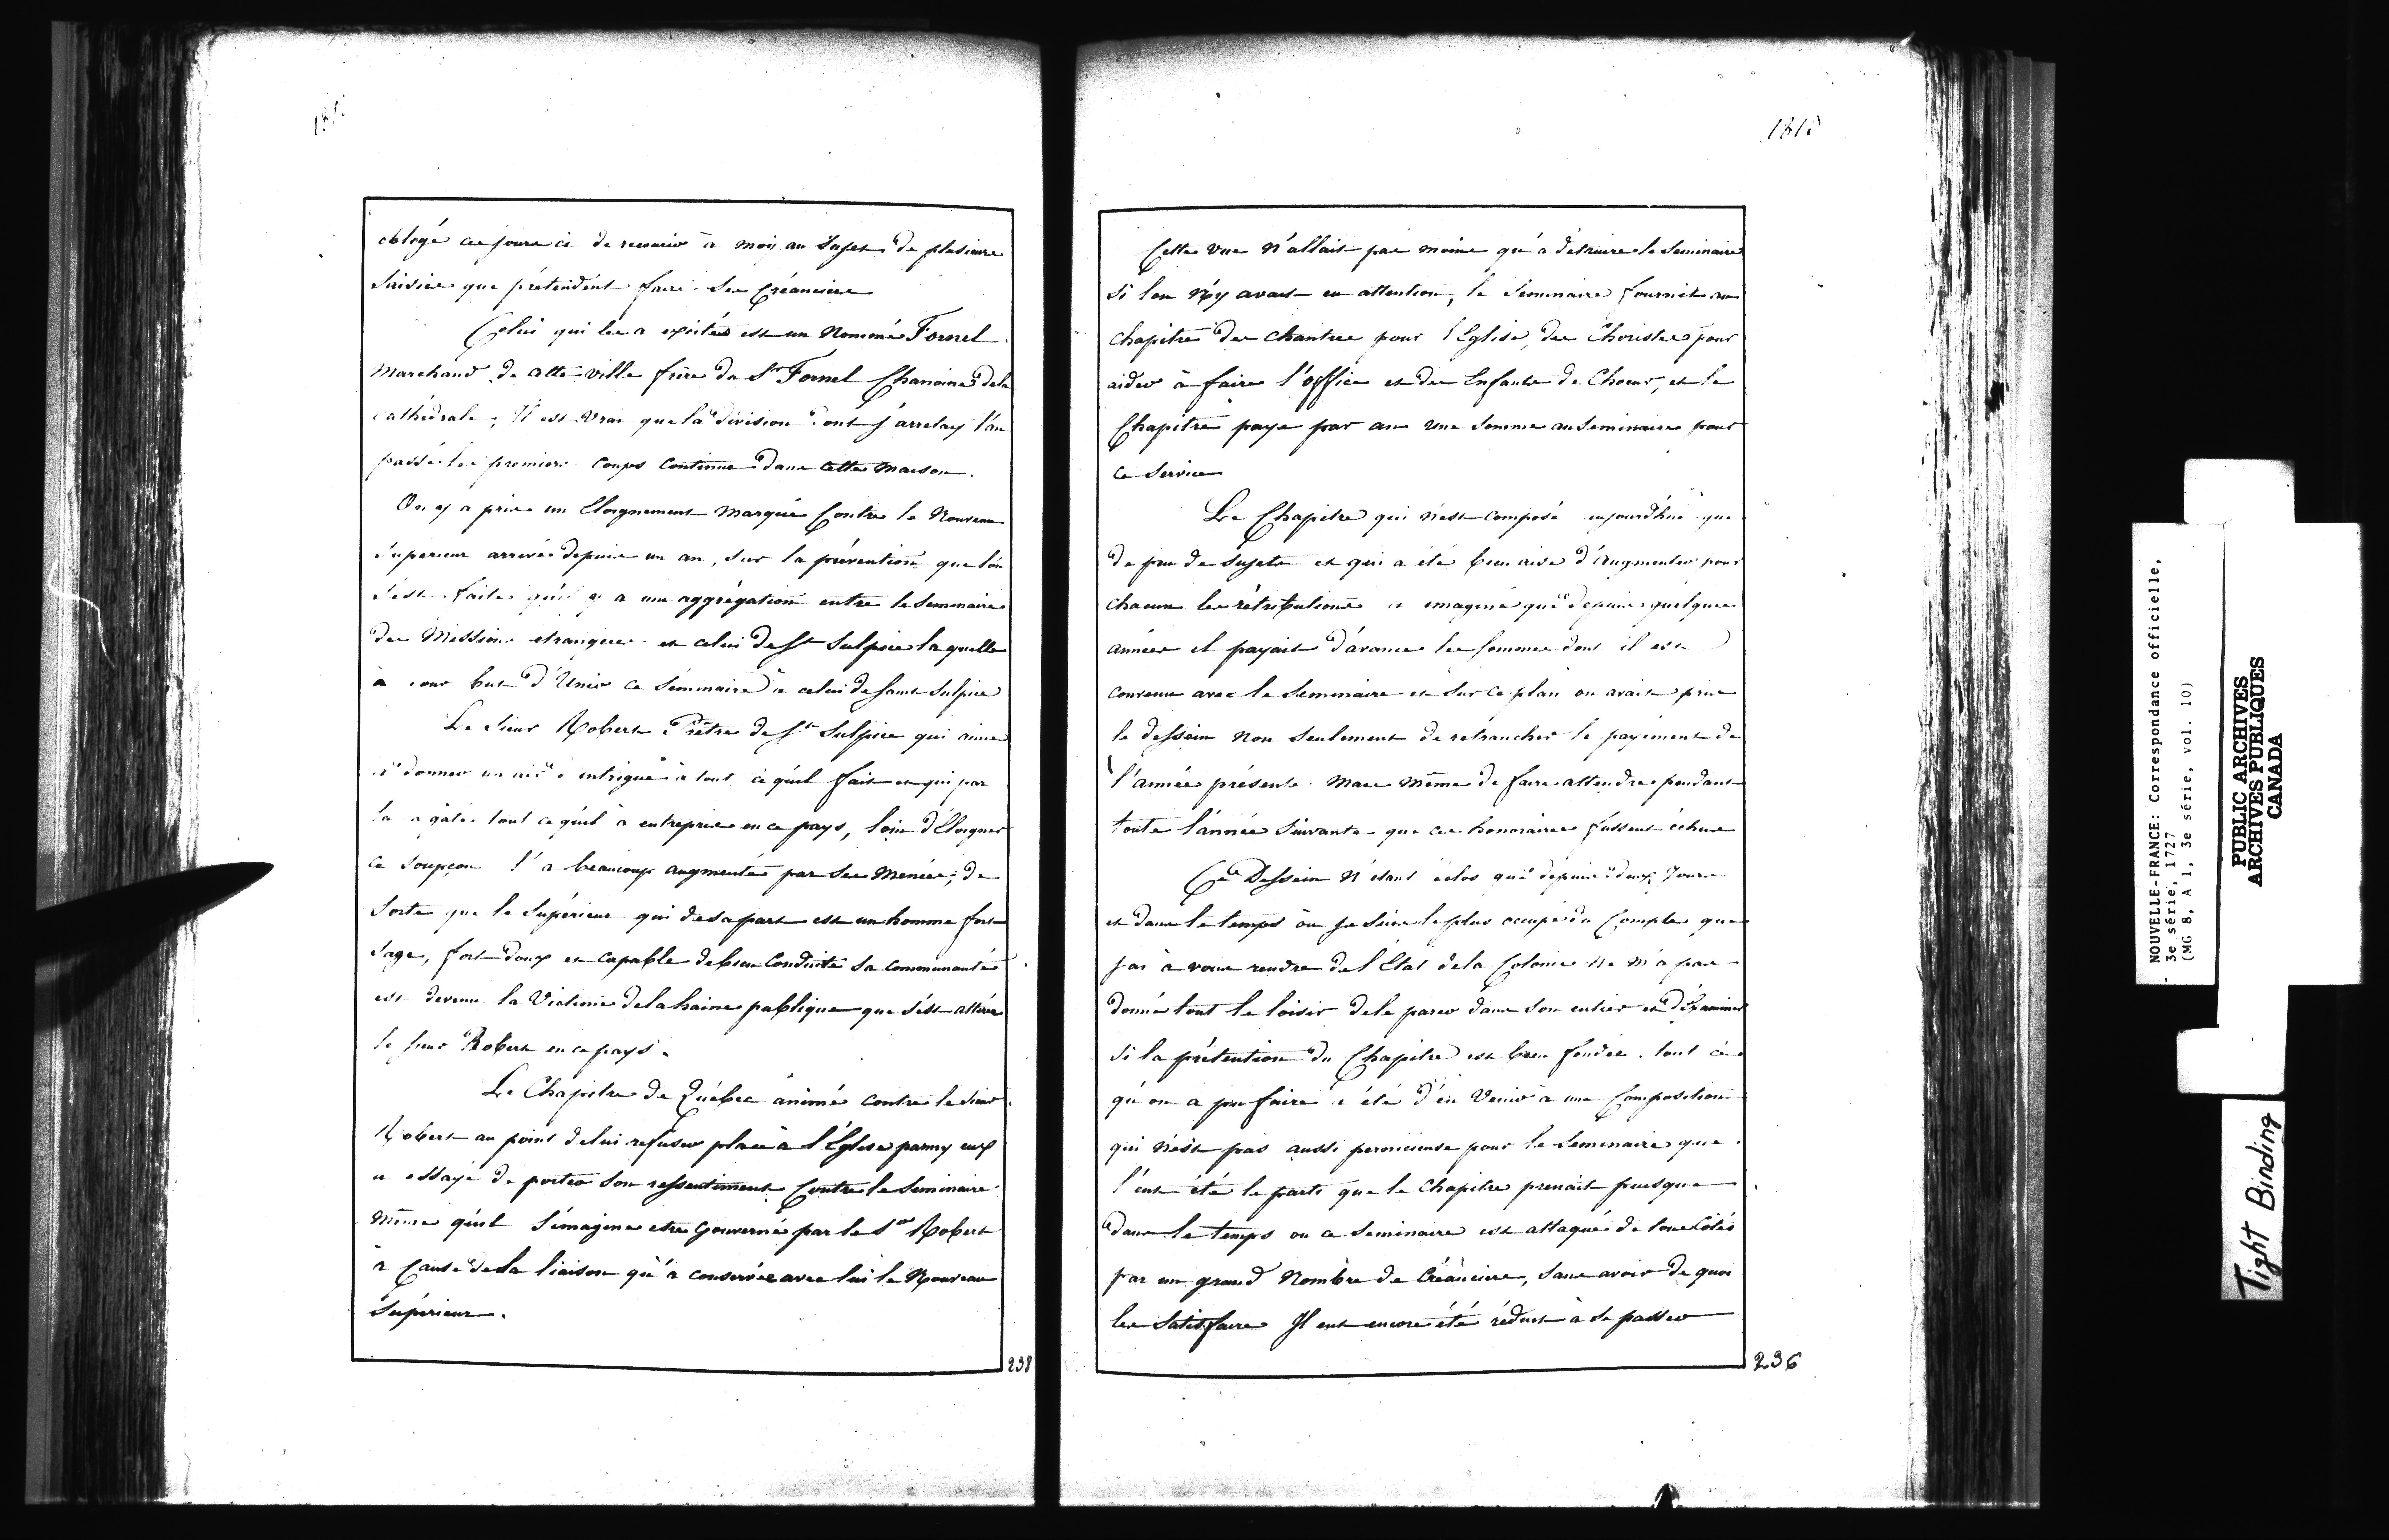 obligé ces jours ci de recourir à moy au Sujet de plusieurs
Saisies que prétendent faire Ses Créanciers
Celui qui les a excités est un Nommé Fornel
Marchand de cette ville frère du Sr Fornel Chanoine de la
cathédrale ; Il est vrai que la division dont j'arretay l'an
passé les premiers coups continue dans cette maison.
On y a pris un Eloignement marqué Contre le Nouveau
Superieur arrivé depuis un an, Sur la prévention que l'on
s'est faite qu'il y a une aggrégation entre le Seminaire
des Missions etrangeres et celui de St Sulpice laquelle
a pour but d'Unir ce Séminaire à celui de Saint Sulpice
Le Sieur Robert Prêtre de St Sulpice qui aime
à donner un air d'intrigue à tout ce qu'il fait et qui par
la a gâté tout ce qu'il a entrepris en ce pays, loin d'Eloigner
ce Soupçon l'a beaucoup augmenté par Ses Menées ; de
Sorte que le Supérieur qui de sa part est un homme fort
Sage, fort doux et capable de bien Conduite Sa communauté
est devenu la Victime de la haine publique que s'est attirée
le Sieur Robert en ce pays.
Le Chapitre de Québec animé contre le Sieur
Robert au point de lui refuser place à l'Eglise parmy eux
a essayé de porter Son ressentiment Contre le Seminaire
Même qu'il S'imagine estre Gouverné par le Sr Robert
à Cause de la liaison qu'a conservée avec lui le Nouveau
Supérieur.
238
1818
Cette vue n'allait pas moins qu'à détruire le Seminaire
Si l'on N'y avait eu attention, le Seminaire fournit au
chapitre des chantres pour l'Eglise, des Choristes pour
aider à faire l'office et des Enfants de Choeur, et le
Chapitre paye par an Une Somme au Seminaire pour
ce Service
Le Chapitre qui n'est composé aujourd'hui que
de peu de Sujets et qui a été bien aise d'Augmenter pour
chacun les rétributions a imaginé que depuis quelques
années il payait d'avance les Sommes dont il est
convenu avec le Seminaire et Sur ce plan on avait pris
le dessein Non Seulement de retrancher le payement de
l'année présente Mais Même de faire attendre pendant
toute l'année Suivante que ces honoraires fussent échus
Ce Dessein N'étant éclos que depuis deux Jours
et dans le temps où Je Suis le plus occupé du Compte que
j'ai à vous rendre de l'Etat de la Colonie Ne m'a pas
donné tout le loisir de le parer dans Son entier et d'Examiner
Si la prétention du Chapitre est bien fondée. tout ce
qu'on a pu faire a été d'en Venir à une Composition
qui n'est pas aussi pernicieuse pour le Seminaire que
l'eut été le parti que le Chapitre prenait puisque
dans le temps ou ce Seminaire est attaqué de tous Côtés
par un grand Nombre de Créanciers, Sans avoir de quoi
les Satisfaire Il eut encore été réduit à Se passer
236
NOUVELLE-FRANCE: Correspondance officielle,
3e série, 1727
(MG 8, A 1, 3e série, vol. 10)
PUBLIC ARCHIVES
ARCHIVES PUBLIQUES
CANADA
Tight Binding